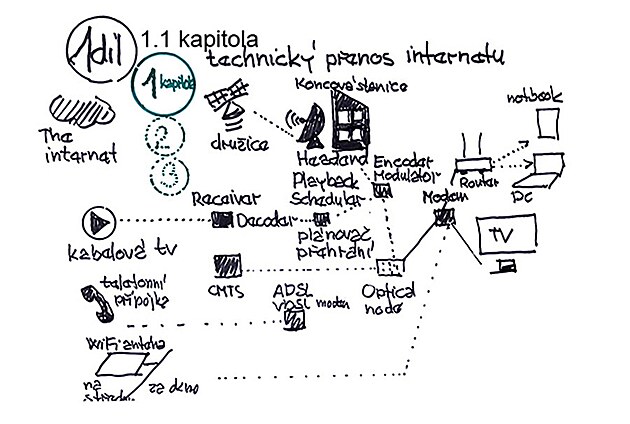 1díl
1.1 kapitola
technický přenos internetu
1 kapitola
2
3
The
internet
družice
Koncová stanice
Headend
notbook
Router
PC
Encoder
Modulator
Modem
Playback
Schedular
Receiver
Decoder
plánovač
přehrání
TV
kabelová tv
CMTS
Optical
node
telefonní
přípojka
ADSL
VDSL modem
WiFi antena
na
střechu
za okno